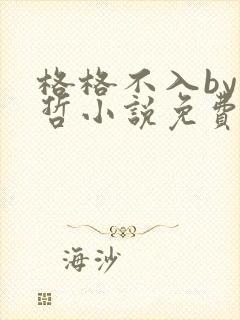 格格不入by
哲小說免費
海沙